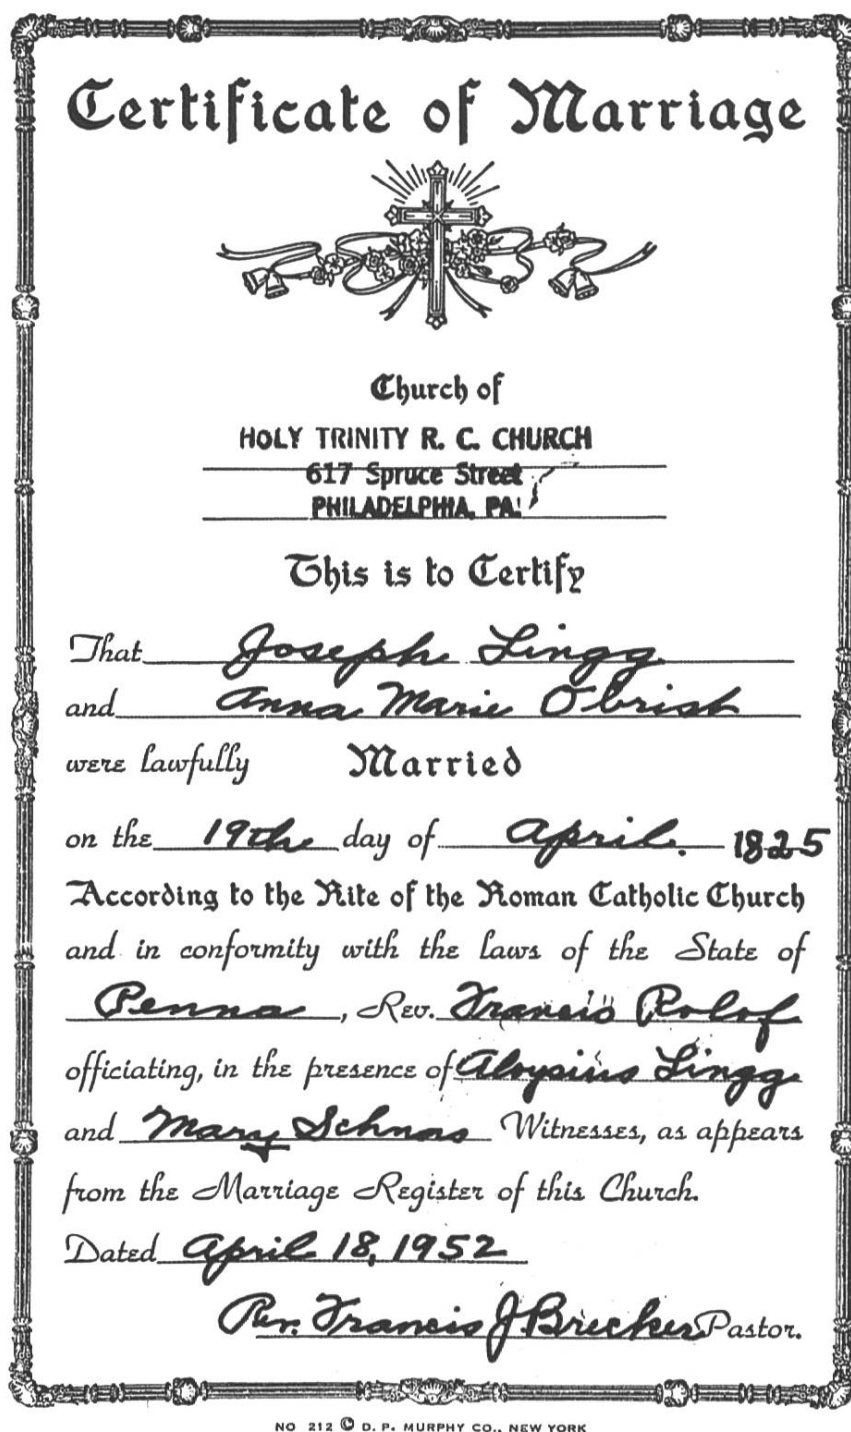 Certificate of Marriage
Church of
HOLY TRINITY R. C. CHURCH
617 Spruce Street
PHILADELPHIA, PA.
This is to Certify
That Joseph Lingg
and Anna Marie Obrist
were lawfully Married
on the 19th day of April. 1825
According to the Rite of the Roman Catholic Church
and in conformity with the laws of the State of
Penna, Rev. Francis Rolof
officiating, in the presence of Aloysius Lingg
and Mary Schnas Witnesses, as appears
from the Marriage Register of this Church.
Dated April 18, 1952
Rev. Francis J Brecker Pastor.
NO 212 © D. P. MURPHY CO., NEW YORK